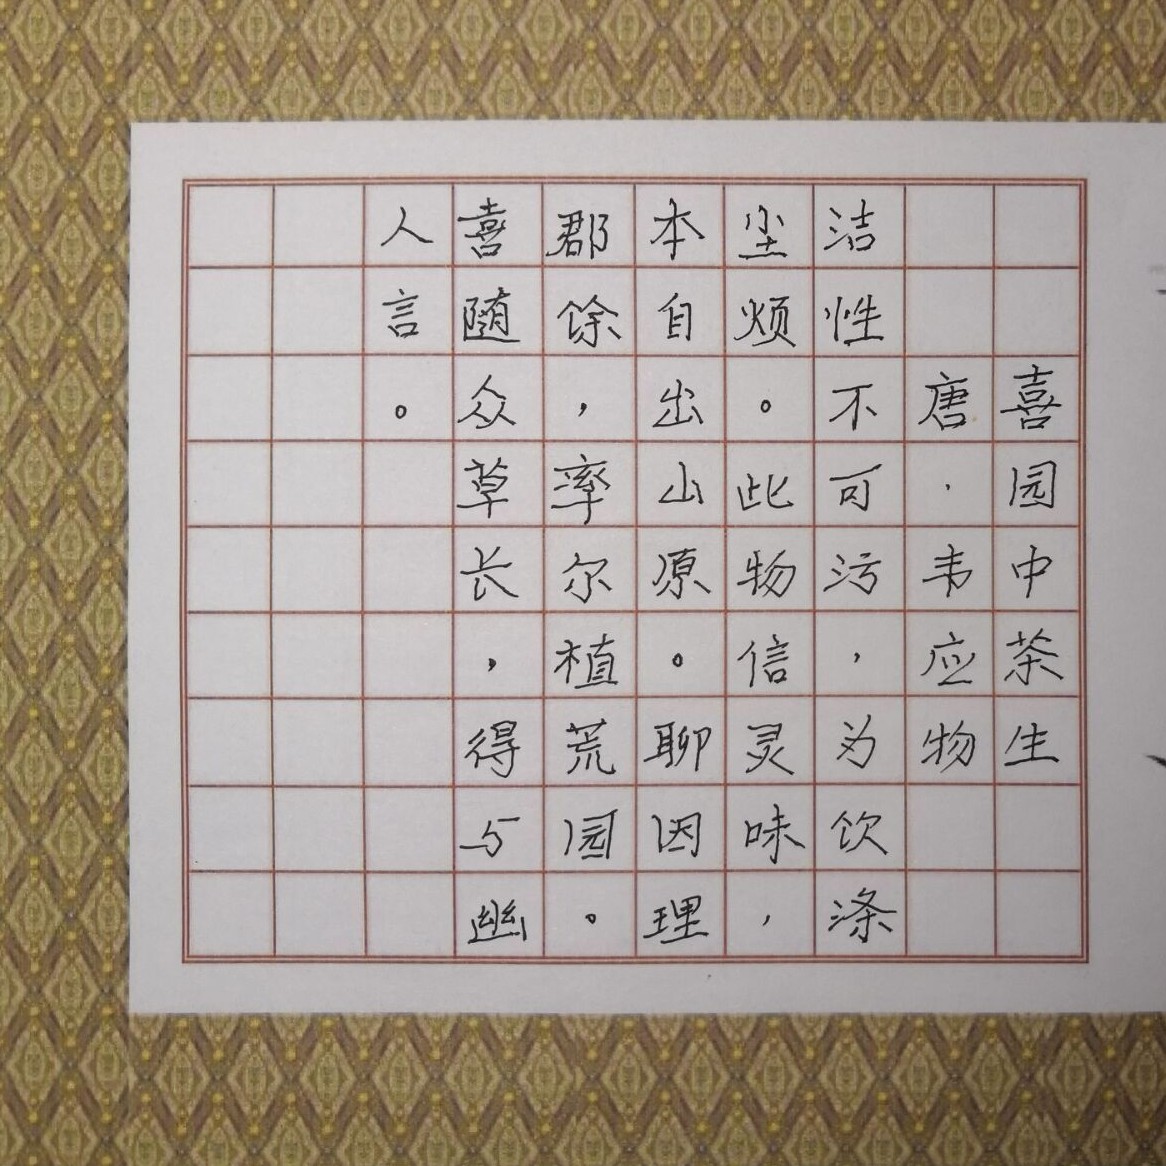 喜园中茶生
唐·韦应物
洁性不可污，为饮涤
尘烦。此物信灵味，
本自出山原。聊因理
郡馀，率尔植荒园。
喜随众草长，得与幽
人言。